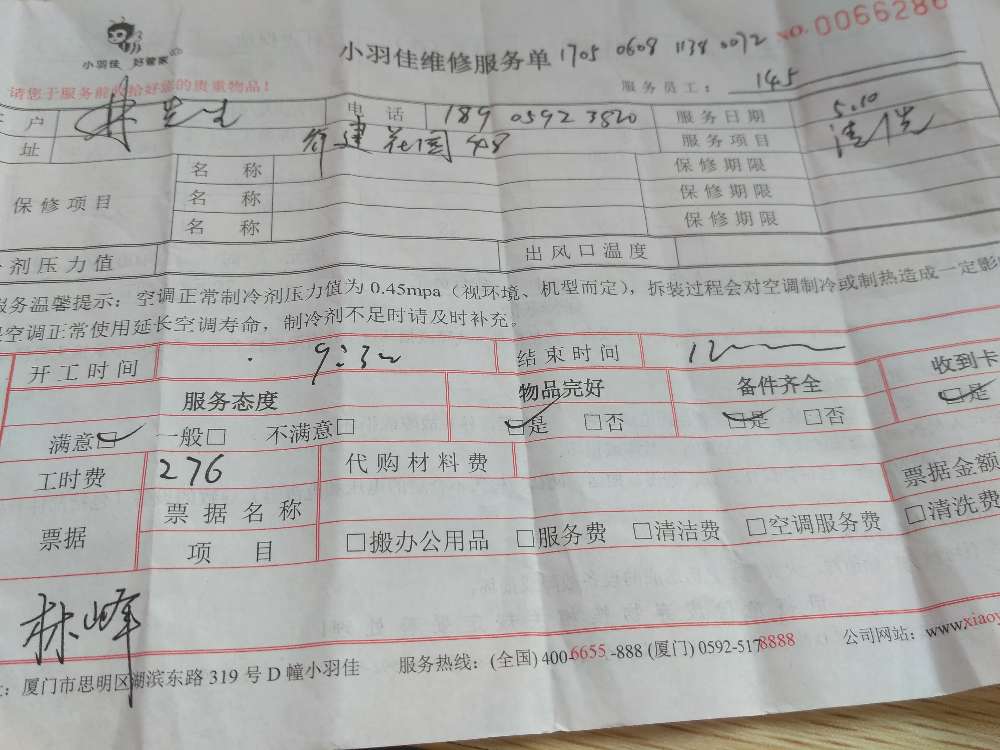 小羽佳 好管家
小羽佳维修服务单 1705 0608 1138 0072 NO.0066286
请您于服务前收拾好您的贵重物品! 服务员工: 145
户 林先生 电话 189 0592 3820 服务日期 5.10
址 建花园 48 服务项目 清洗
保修项目 名称 保修期限
名称 保修期限
名称 保修期限
剂压力值 出风口温度
服务温馨提示: 空调正常制冷剂压力值为 0.45mpa (视环境、机型而定), 拆装过程会对空调制冷或制热造成一定影
空调正常使用延长空调寿命, 制冷剂不足时请及时补充。
开工时间 9:30 结束时间 12
服务态度 物品完好 备件齐全 收到卡
满意□ 一般□ 不满意□ □是 □否 □是 □否 □是
工时费 276 代购材料费 票据金额
票据 票据名称
项目 □搬办公用品 □服务费 □清洁费 □空调服务费 □清洗费
林峰
厦门市思明区湖滨东路 319 号 D 幢小羽佳 服务热线: (全国) 400-6655-888 (厦门) 0592-5178888 公司网站: www.xiaoy